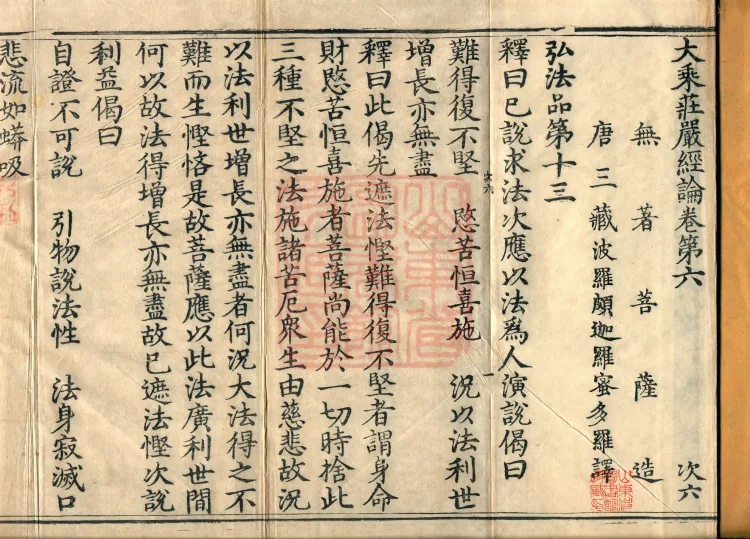 大乘莊嚴經論卷第六 次六
無著菩薩造
唐三藏波羅頗迦羅蜜多羅譯
弘法品第十三
釋曰已說求法次應以法爲人演說偈曰
難得復不堅 愍苦恒喜施 況以法利世
增長亦無盡
次六 一
釋曰此偈先遮法慳難得復不堅者謂身命
財愍苦恒喜施者菩薩尚能於一切時捨此
三種不堅之法施諸苦厄衆生由慈悲故況
以法利世增長亦無盡者何況大法得之不
難而生慳悋是故菩薩應以此法廣利世間
何以故法得增長亦無盡故已遮法慳次說
利益偈曰
自證不可說 引物說法性 法身寂滅口
悲流如蟒吸